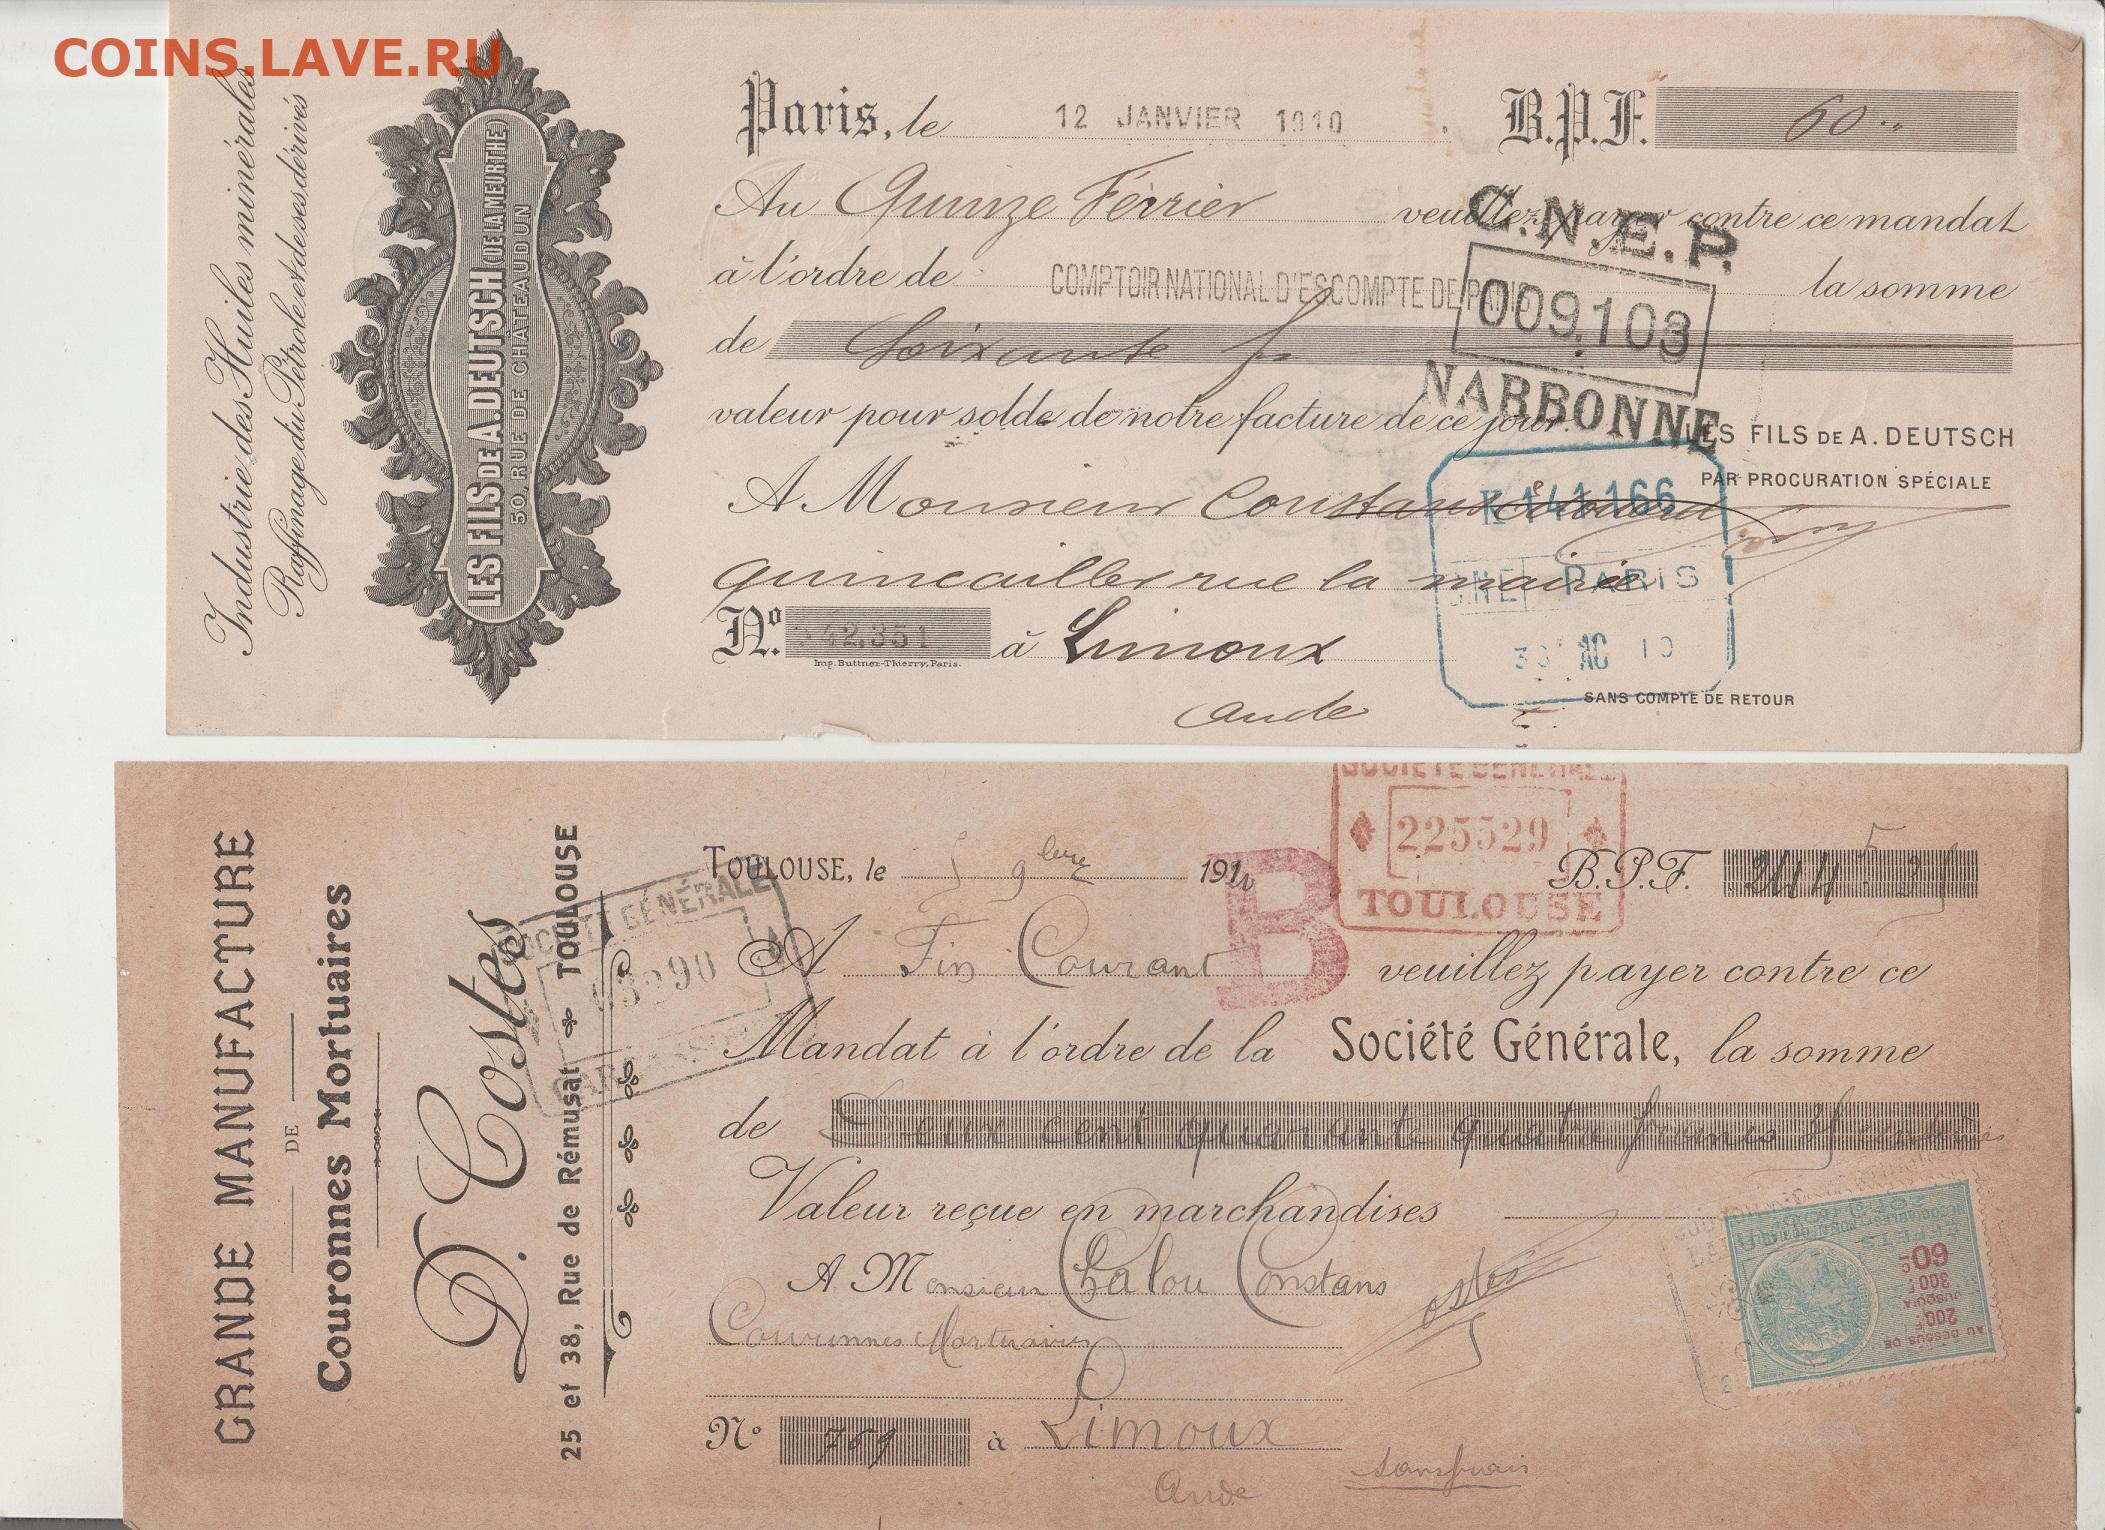 COINS.LAVE.RU
Industrie des Huiles minérales
Raffinage du Pétrole et de ses dérivés
LES FILS DE A. DEUTSCH (DE LA MEURTHE)
50, RUE DE CHÂTEAUDUN
Paris, le 12 JANVIER 1910 B.P.F. 60
Au Quinze Février veuillez payer contre ce mandat
à l'ordre de COMPTOIR NATIONAL D'ESCOMPTE DE PARIS la somme
de Soixante f
valeur pour solde de notre facture de ce jour.
C.N.E.P.
009.103
NARBONNE
LES FILS DE A. DEUTSCH
PAR PROCURATION SPÉCIALE
A Monsieur Constans
K 141.166
quincailler rue la mairie
PARIS
No. 42,351 à Limoux
Imp. Buttner-Thierry, Paris.
Aude
SANS COMPTE DE RETOUR
GRANDE MANUFACTURE
DE
Couronnes Mortuaires
D. Costes
25 et 38, Rue de Rémusat TOULOUSE
SOCIÉTÉ GÉNÉRALE
225529
TOULOUSE
B
SOCIÉTÉ GÉNÉRALE
TOULOUSE, le 5 9bre 191 B.P.F. 244.35
A Fin Courant veuillez payer contre ce
Mandat à l'ordre de la Société Générale, la somme
de Deux cent quarante quatre francs 35 centimes
Valeur reçue en marchandises
A Monsieur Chalou Constans
Couronnes Mortuaires
No 769 à Limoux
Aude
sans frais
EFFETS
60c
300F
JUSQU'A
200F
AU DESSUS DE